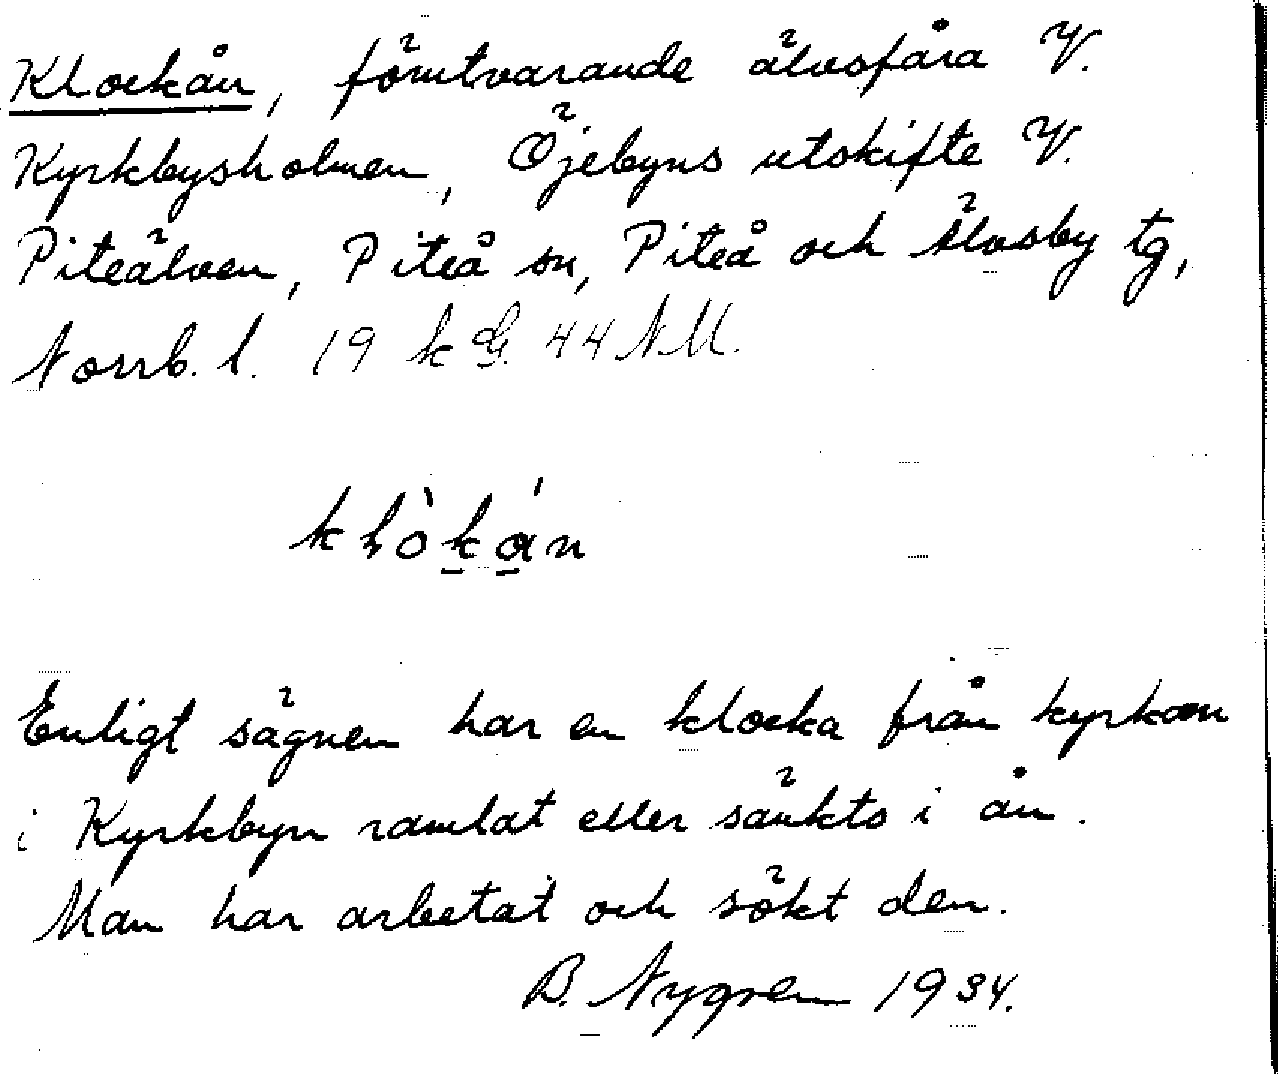 Klockån, förutvarande älvsfåra V.
Kyrkbysholmen, Öjebyns utskifte V.
Piteälven, Piteå sn, Piteå och Älvsby tg,
Norrb. l. 19 k G. 44 N.M.
Enligt sägnen har en klocka från kyrkan
i Kyrkbyn ramlat eller sänkts i ån.
Man har arbetat och sökt den.
B. Nygren 1934.